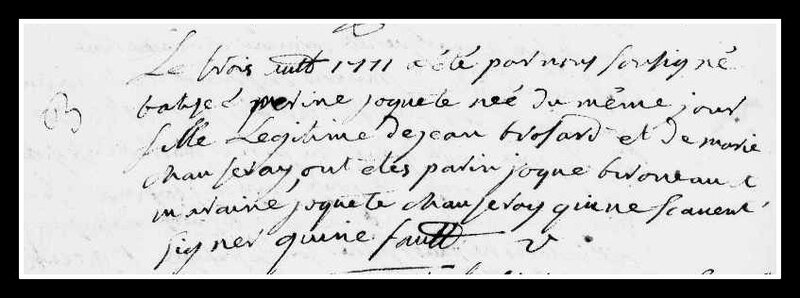 B
Le trois autt 1711 a été par nous sousigné
batisé perine joquete neé du même jour
fille Legitime de jean brosard et de marie
chauseray, ont étés parin joque bironeau &
maraine joquete chauseray qui ne scavent
signer quine fautt